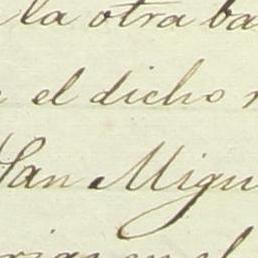 la otra ba
el dicho
San Migu
en el